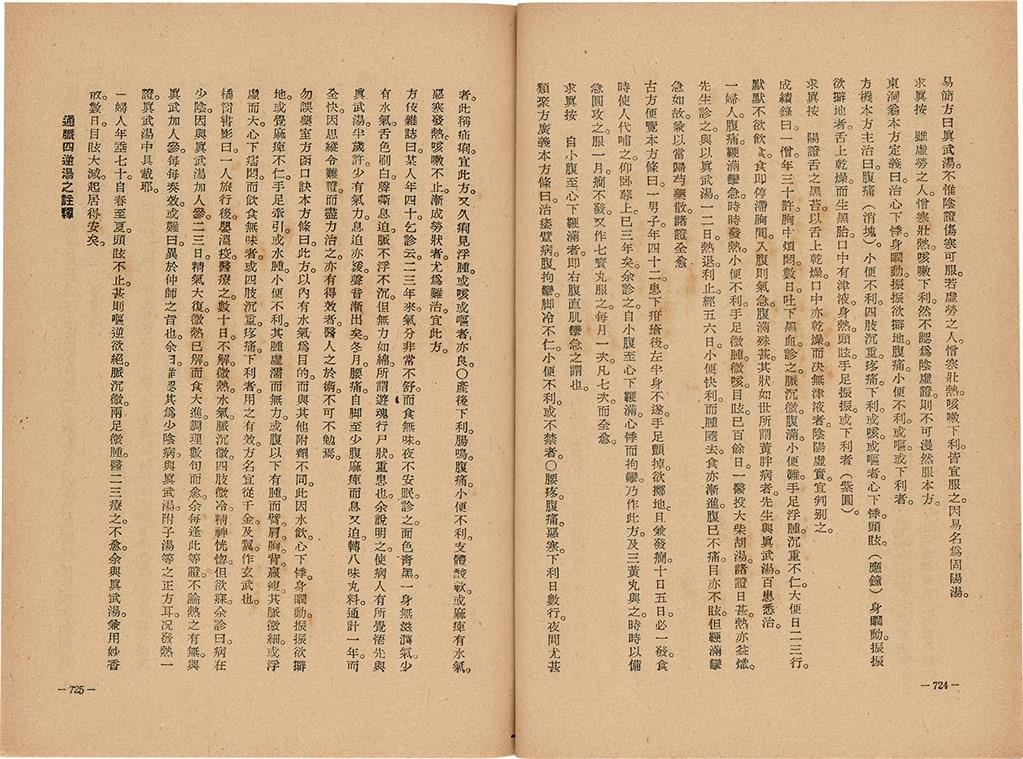 易簡方曰眞武湯。不惟陰證傷寒可服。若虛勞之人。憎寒壯熱。咳嗽下利。皆宜服之。因易名爲固陽湯。
求眞按　雖虛勞之人。憎寒壯熱。咳嗽下利。然不認爲陰虛證。則不可漫然服本方。
東洞翁本方定義曰。治心下悸。身瞤動。振振欲擗地。腹痛。小便不利。或嘔。或下利者。
方機本方主治曰。腹痛（消塊）。小便不利。四肢沉重疼痛。下利。或咳。或嘔者。心下悸。頭眩（應鐘）身瞤動。振振
欲擗地者。舌上乾燥而生黑胎。口中有津液。身熱頭眩。手足振振。或下利者（紫圓）。
求眞按　陽證舌之黑苔。以舌上乾燥。口中亦乾燥。而決無津液者。陰陽虛實。宜判别之。
成績錄曰。一僧年三十許。胸中煩悶數日。吐下黑血。診之。脈沉微。腹滿。小便難。手足浮腫。沉重不仁。大便日二三行。
默默不欲飲食。食即停滯胸間。入腹則氣急腹滿殊甚。其狀如世所謂黃胖病者。先生與眞武湯。百患悉治。
一婦人腹痛。鞕滿攣急。時時發熱。小便不利。手足微腫。微咳目眩。已百餘日。一醫投大柴胡湯。諸證日甚。熱亦益熾。
先生診之。與以眞武湯。一二日熱退利止。經五六日。小便快利。而腫隨去。食亦漸進。腹已不痛。目亦不眩。但鞕滿攣
急如故。兼以當歸芍藥散。諸證全愈
古方便覽本方條曰。一男子年四十二。患下疳瘡。後左半身不遂。手足顫掉。欲擲地。且兼發癎。十日五日必一發。食
時使人代哺之。仰臥蓐上已三年矣。余診之。自小腹至心下鞕滿。心悸而拘攣。乃作此方及三黃丸與之。時時以備
急圓攻之。服一月。癎不發。又作七寶丸服之。每月一次。凡七次而全愈。
求眞按　自小腹至心下鞕滿者。即右腹直肌攣急之謂也。
類聚方廣義本方條曰。治痿躄病。腹拘攣。脚冷不仁。小便不利。或不禁者。〇腰疼腹痛。惡寒。下利日數行。夜間尤甚
者。此稱疝痢。宜此方。又久痢見浮腫。或咳。或嘔者亦良。〇產後下利。腸鳴腹痛。小便不利。支體酸軟。或麻痺。有水氣。
惡寒發熱。咳嗽不止。漸成勞狀者。尤爲難治。宜此方。
方伎雜誌曰。某人年四十。乞診。云二三年來氣分非常不舒。而食無味。夜不安眠。診之。面色靑黑。一身無滋潤氣。少
有水氣。舌色刷白。聲嘶息迫。脈不浮不沉。但無力如綿。所謂遊魂行尸狀。重患也。余說明之。使病人有所覺悟。先與
眞武湯。半歲許。少有氣力。息迫亦緩。聲音漸出矣。冬月腰痛。自脚至少腹麻痺。而息又迫。轉八味丸料。通計一年而
全快。因思縱令難證。而盡力治之。亦有得效者。醫人之於術。不可不勉焉。
勿誤藥室方函口訣本方條曰。此方以內有水氣爲目的。而與其他附劑不同。此因水飲。心下悸。身瞤動。振振欲擗
地。或覺麻痺不仁。手足牽引。或水腫小便不利。其腫虛濡而無力。或腹以下有腫。而臂肩胸背羸瘦。其脈微細。或浮
虛。而大心下痞悶。而飲食無味者。或四肢沉重疼痛。下利者。用之有效。方名宜從千金及翼。作玄武也。
橘窗書影曰。一人旅行後。嬰溫疫。醫療之。數十日不解。微熱。水氣。脈沉微。四肢微冷。精神恍惚。但欲寐。余診曰。病在
少陰。因與眞武湯加人參。二三日。精氣大復。微熱已解。而食大進。調理數旬而愈。余每逢此等證。不論熱之有無。與
眞武加人參。每每奏效。或難曰。異於仲師之旨也。余曰。華認其爲少陰病。與眞武湯附子湯等之正方耳。況發熱一
證。眞武湯中具載耶。
一婦人年垂七十。自春至夏。頭眩不止。甚則嘔逆欲絕。脈沉微。兩足微腫。醫二三療之不愈。余與眞武湯。兼用妙香
散。數日目眩大減。起居得安矣。
通脈四逆湯之註釋
— 724 —
— 725 —